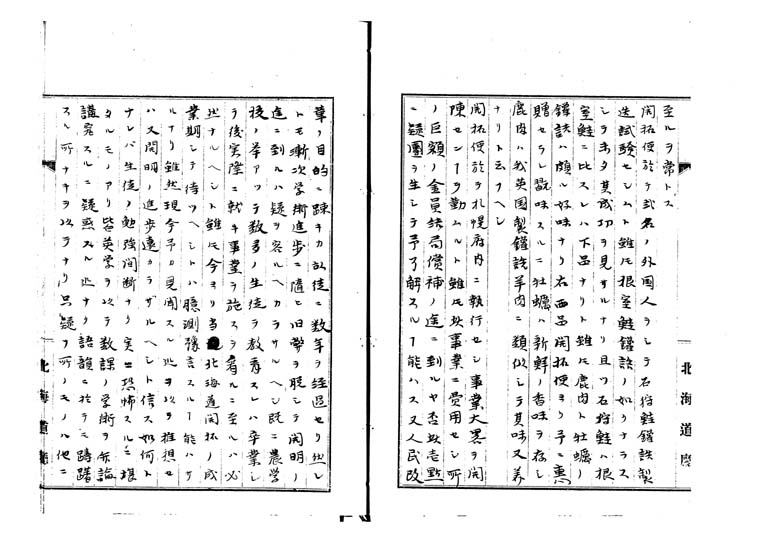 至ルヲ常トス
開拓使於テ弐名ノ外国人ヲシテ石狩鮭鑵詰製
造試験セシムト雖㪽根室鮭鑵詰ノ如クナラス
シテ未タ其成功ヲ見サルナリ且ツ石狩鮭ハ根
室鮭ニ比スレハ下品ナリト雖㪽鹿肉ト牡蠣ノ
鑵詰ハ頗ル好味ナリ右両品開拓使ヨリ予ニ恵
贈セラレ翫味スルニ牡蠣ハ新鮮ノ香味ヲ存シ
鹿肉ハ我英国製鑵詰羊肉ニ類似シテ其味又美
ナリト云フヘシ
開拓使於ヲ札幌府内ニ執行セシ事業大畧ヲ開
陳センヿヲ勤ムルト雖㪽此事業ニ費用セシ所
ノ巨額ノ金員結局償補ノ途ニ到ルヤ否此壱点
ニ疑團ヲ生シテ予了解スルヿ能ハス又人民改
革ノ目的ニ踈キカ故徒ニ数年ヲ経過セリ然レ
トモ漸次学術進歩ニ随ヒ旧弊ヲ脱シテ開明ノ
途ニ到ルハ疑ヲ容ルヘカラサルヘシ既ニ農学
校ノ挙アツテ数多ノ生徒ヲ教育スレハ卒業シ
テ後実際ニ就キ事業ヲ施スヲ看ルニ至ルハ必
然ナルヘシト雖㪽今ヨリ当北海道開拓ノ成
業期シテ待ツヘシトハ臆測豫言スルヿ能ハサ
ルナリ雖然現今予カ見聞スル処ヲ以テ推想セ
ハ又開明ノ進歩遠カラサルヘシト信ス如何ト
ナレハ生徒ノ勉強間断ナク実ニ恐怖スルニ堪
タルモノアリ皆英学ヲ以テ数課ノ学術ヲ弁論
講究スルニ疑惑スル処ナク語韻ニ於テモ躊躇
スル所ナキヲ以テナリ只疑フ所ノモノハ他ニ
北海道廳
北海道廳